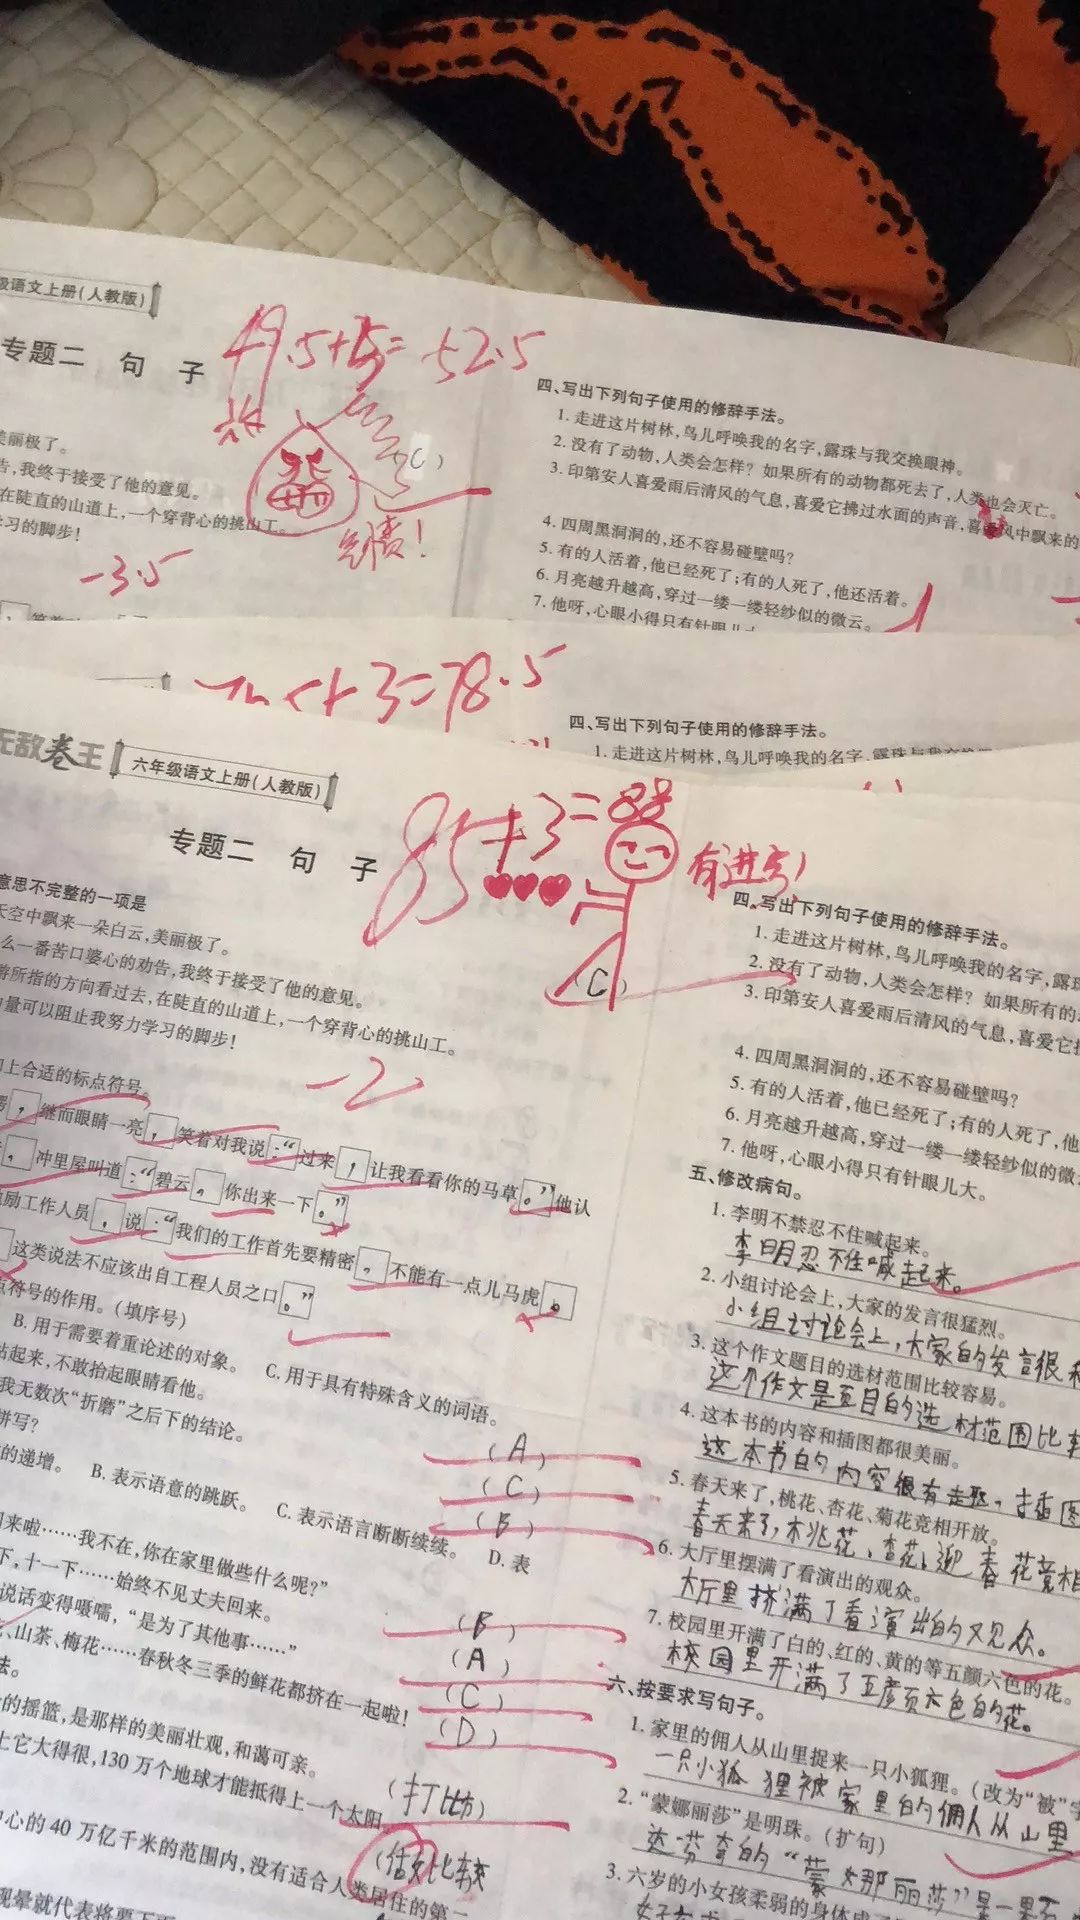 级语文上册(人教版)
专题二 句 子
49.5+3=52.5
美丽极了。
告,我终于接受了他的意见。
在陡直的山道上,一个穿背心的挑山工。
学习的脚步!
-3.5
四、写出下列句子使用的修辞手法。
1.走进这片树林,鸟儿呼唤我的名字,露珠与我交换眼神。
2.没有了动物,人类会怎样?如果所有的动物都死去了,人类也会灭亡。
3.印第安人喜爱雨后清风的气息,喜爱它拂过水面的声音,喜爱风中飘来的
4.四周黑洞洞的,还不容易碰壁吗?
5.有的人活着,他已经死了;有的人死了,他还活着。
6.月亮越升越高,穿过一缕一缕轻纱似的微云。
7.他呀,心眼小得只有针眼儿大
+3=78.5
四、写出下列句子使用的修辞手法。
1.走进这片树林,鸟儿呼唤我的名字,露珠与我交换
无敌卷王
六年级语文上册(人教版)
专题二 句 子
85+3=88
有进步!
意思不完整的一项是
(C)
天空中飘来一朵白云,美丽极了。
么一番苦口婆心的劝告,我终于接受了他的意见。
所指的方向看过去,在陡直的山道上,一个穿背心的挑山工。
量可以阻止我努力学习的脚步!
-2
上合适的标点符号。
,继而眼睛一亮,笑着对我说:“过来,让我看看你的马草。”他认
,冲里屋叫道:“碧云,你出来一下。”
励工作人员,说:“我们的工作首先要精密,不能有一点儿马虎。
这类说法不应该出自工程人员之口。”
点符号的作用。(填序号)
B.用于需要着重论述的对象。 C.用于具有特殊含义的词语。
站起来,不敢抬起眼睛看他。
(A)
我无数次“折磨”之后下的结论。
(C)
拼写?
(B)
的递增。 B.表示语意的跳跃。 C.表示语言断断续续。 D.表
回来啦……我不在,你在家里做些什么呢?”
(B)
下,十一下……始终不见丈夫回来。
(A)
说话变得嗫嚅,“是为了其他事……”
(C)
、山茶、梅花……春秋冬三季的鲜花都挤在一起啦!
(D)
法。
的摇篮,是那样的美丽壮观,和蔼可亲。
(打比方)
上它大得很,130万个地球才能抵得上一个太阳。
比较
中心的40万亿千米的范围内,没有适合人类居住的第一
现晕就代表将要下雨
四、写出下列句子使用的修辞手法。
1.走进这片树林,鸟儿呼唤我的名字,露珠
2.没有了动物,人类会怎样?如果所有的
3.印第安人喜爱雨后清风的气息,喜爱它拂
4.四周黑洞洞的,还不容易碰壁吗?
5.有的人活着,他已经死了;有的人死了,他
6.月亮越升越高,穿过一缕一缕轻纱似的微
7.他呀,心眼小得只有针眼儿大。
五、修改病句。
1.李明不禁忍不住喊起来。
李明忍不住喊起来。
2.小组讨论会上,大家的发言很猛烈。
小组讨论会上,大家的发言很
3.这个作文题目的选材范围比较容易。
这个作文是页目的选材范围比较
4.这本书的内容和插图都很美丽。
这本书的内容很有趣,插图
5.春天来了,桃花、杏花、菊花竞相开放。
春天来了,桃花、杏花、迎春花竞相
6.大厅里摆满了看演出的观众。
大厅里挤满了看演出的观众。
7.校园里开满了白的、红的、黄的等五颜六色的花。
校园里开满了五颜六色的花。
六、按要求写句子。
1.家里的佣人从山里捉来一只小狐狸。(改为“被”字
一只小狐狸被家里的佣人从山里
2.“蒙娜丽莎”是明珠。(扩句)
达·芬奇的“蒙娜丽莎”是一颗
3.六岁的小女孩柔弱的身体成